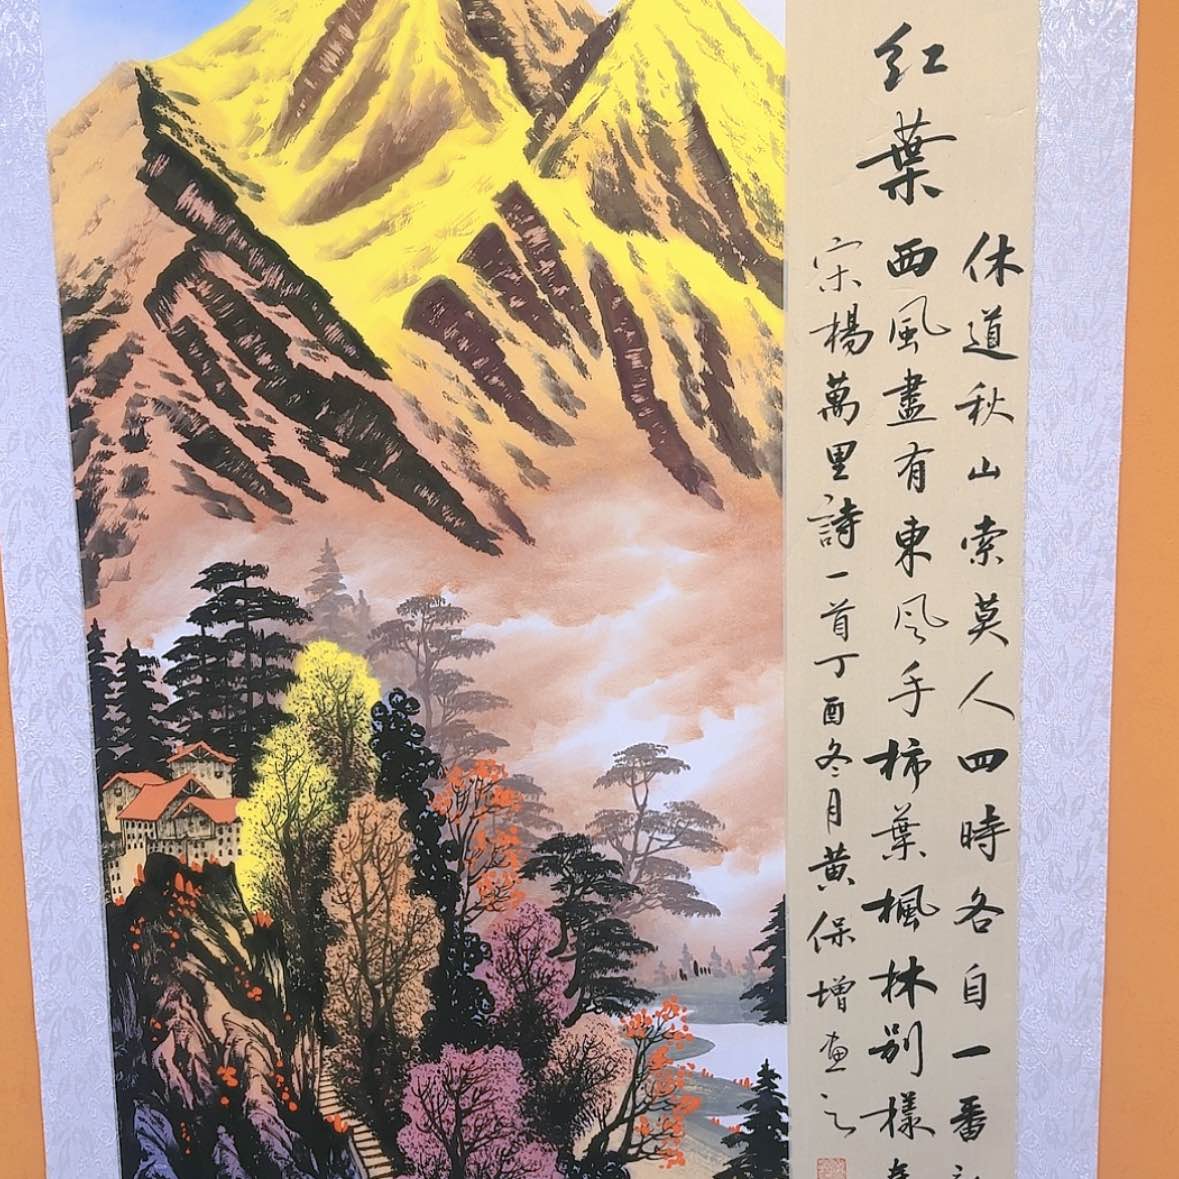 红葉
休道秋山索莫人四時各自一番
西風盡有東风手柿葉楓林别樣
宋楊萬里詩一首丁酉冬月黄保增画之